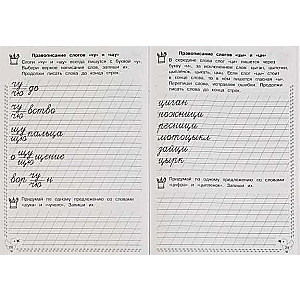 Правописание слогов «чу» и «щу»
Слоги «чу» и «щу» всегда пишутся с буквой «у».
Выбери верное написание слов, запиши их.
Продолжи писать слова до конца строк.
чу/чю до
чу/чю вство
щу/щю пальца
о щу/щю щение
вор чу/чю н
Придумай по одному предложению со словами
Запиши их.
Правописание слогов «цы» и «ци»
В середине слова слог «ци» пишется через
букву «и», за исключением слов: цыган, цыпочки,
цыплёнок, цыкать, цыц. Если слог «цы» стоит
в конце слова, то в нём пишется гласная «ы».
Перепиши слова, исправляя ошибки. Продолжи
писать слова до конца строк.
циган
ножници
ресници
мотоцыкл
зайци
цырк
Придумай по одному предложению со словами
«цифра» и «цыплёнок». Запиши их.